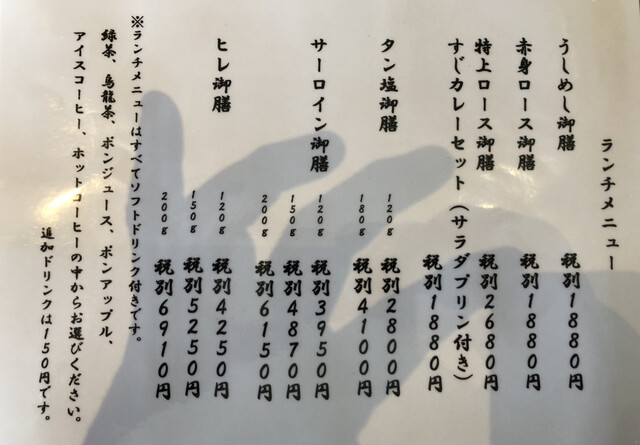 ランチメニュー
うしめし御膳 税別1880円
赤身ロース御膳 税別1880円
特上ロース御膳 税別2680円
すじカレーセット(サラダプリン付き) 税別1880円
タン塩御膳 120g 税別2800円
180g 税別4100円
サーロイン御膳 120g 税別3950円
150g 税別4870円
200g 税別6150円
ヒレ御膳 120g 税別4250円
150g 税別5250円
200g 税別6910円
※ランチメニューはすべてソフトドリンク付きです。
緑茶、烏龍茶、ポンジュース、ポンアップル、
アイスコーヒー、ホットコーヒーの中からお選びください。
追加ドリンクは150円です。